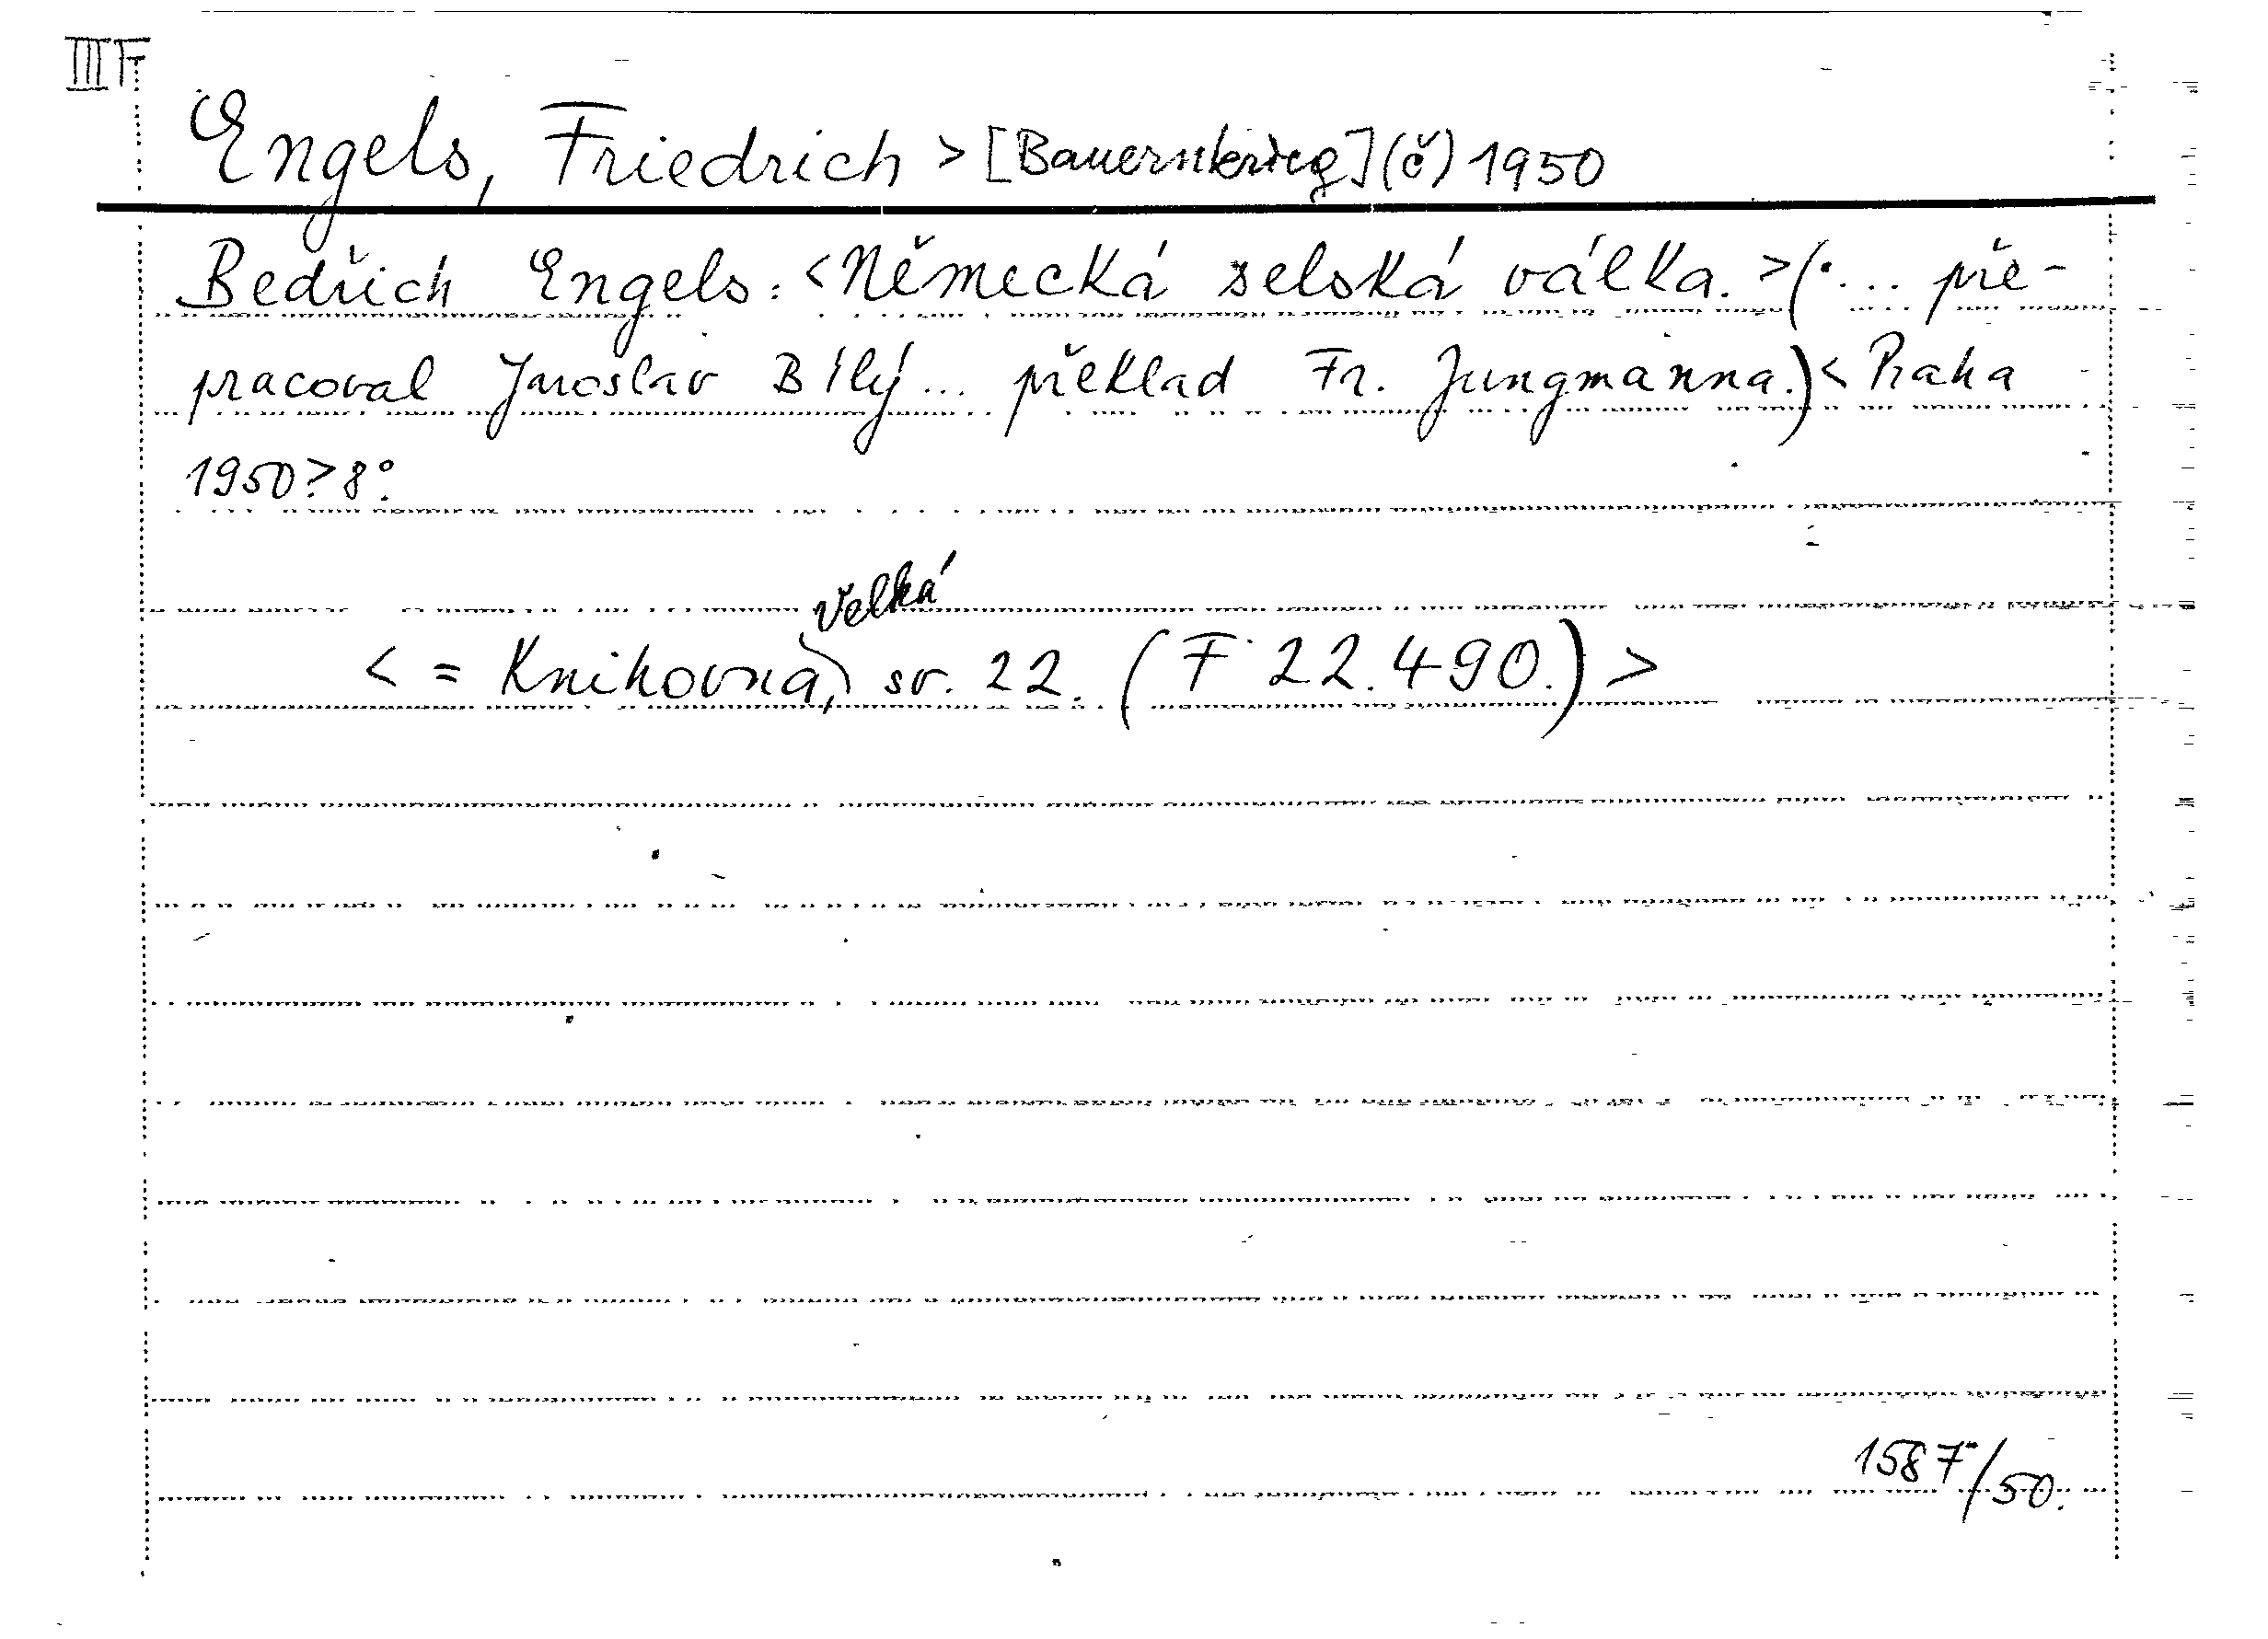 III F
Engels, Friedrich > [Bauernkrieg] (č) 1950
Bedřich Engels: <Německá selská válka.> (... pře-
pracoval Jaroslav Bílý... překlad Fr. Jungmanna.) < Praha
1950> 8°.
velká
< = Knihovna, sv. 22. (F 22.490.) >
1587/50.